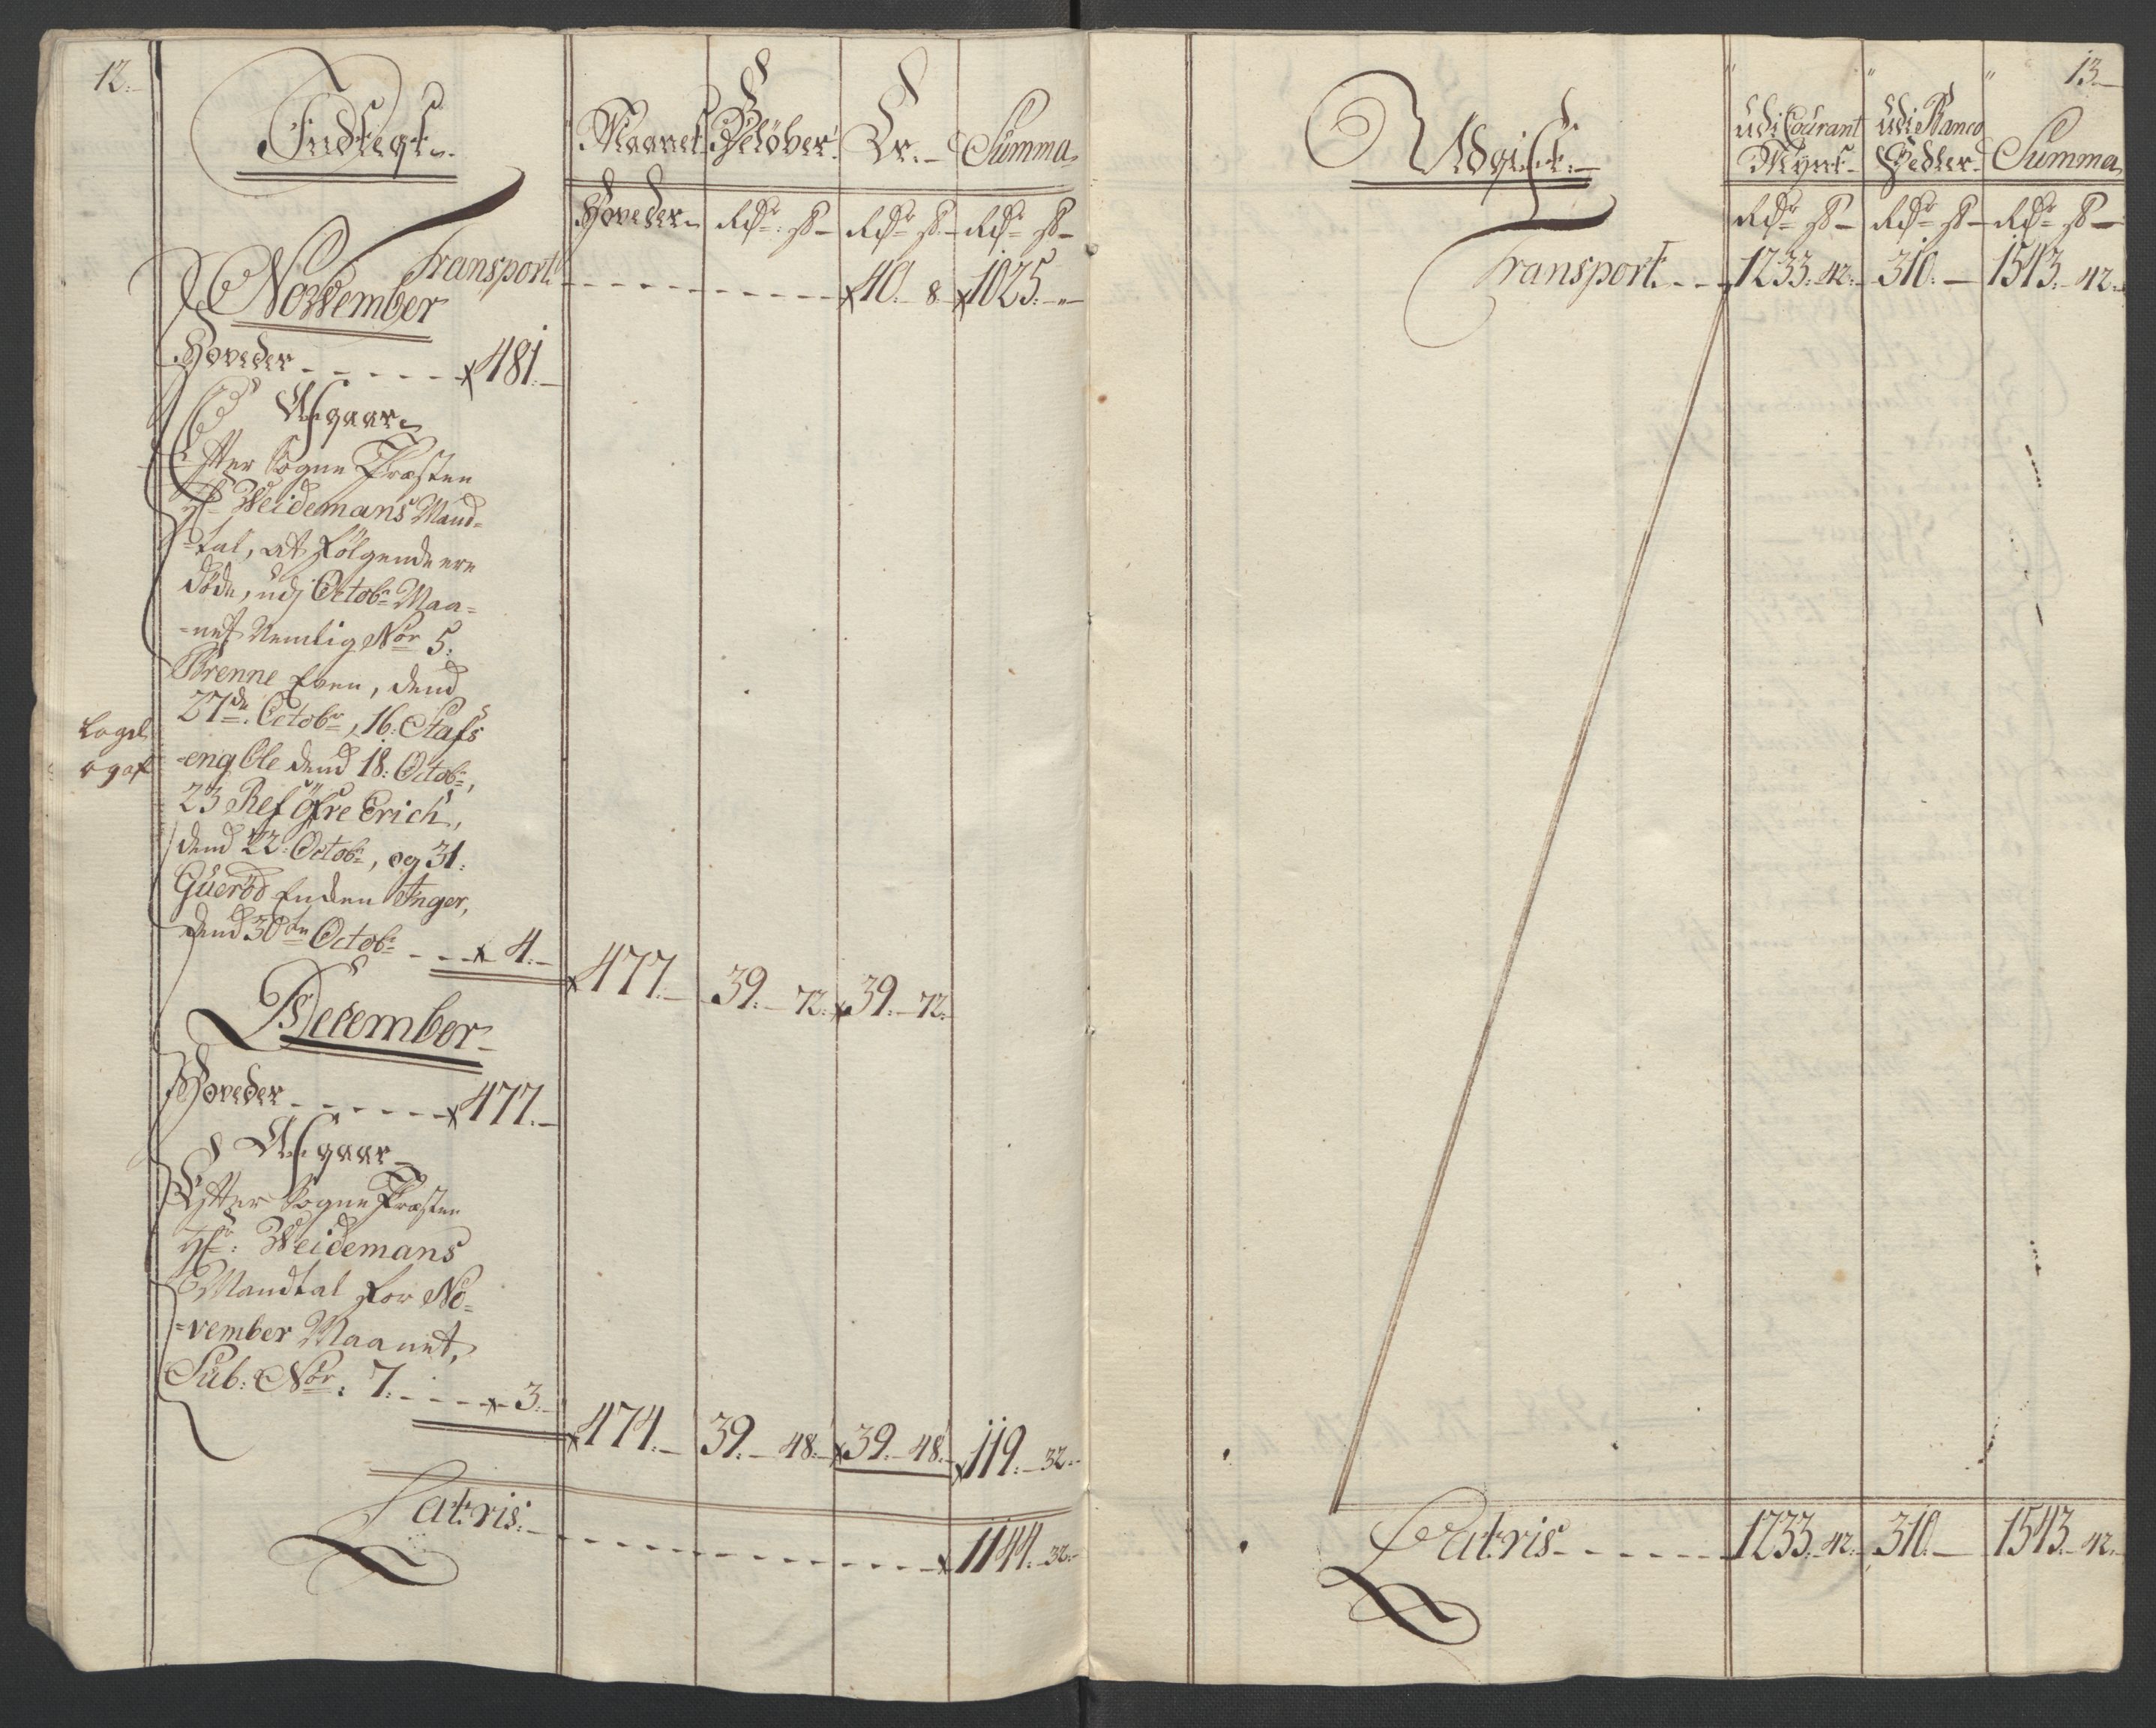 12.
Indtegt.
Maanet
Beløber.
Er.
Summa
Hoveder
Rdr. ß
Rdr. ß
Rdr. ß
Transport. - - - 40. 8 1025. "
November
Hoveder - - - - - 481.
Afgaar
Efter Sogne Præsten
Hr. Weidemans Mand=
=tal, at følgende ere
døde, udj Octobr. Maa=
=net Nemlig Nor. 5.
Brenne Even, dend
27de. Octobr, 16. Stafs
eng Ole dend 18. Octobr,
23 Refs öfre Erich,
dend 22. Octobr, og 31.
Guerød Enden Inger,
dend 30te Octobr - - - 4.
477. 39. 72. 39. 72.
December
Hoveder - - - - - - 477.
Afgaar
Efter Sogne Præsten
Hr. Weidemans
Mandtal for No=
=vember Maanet,
Sub. Nor. 7. - - - - 3.
474. 39. 48. 39. 48. 119. 32.
Latris. - - - 1144. 32.
13.
Udgift.
udi Courant
Mynt
udi Banco
Sedler
Summa
Rdr. ß
Rdr. ß
Rdr. ß
Transport. - - - 1233. 42. 310. 1543. 42.
Latris - - - - - 1233. 42. 310. 1543. 42.